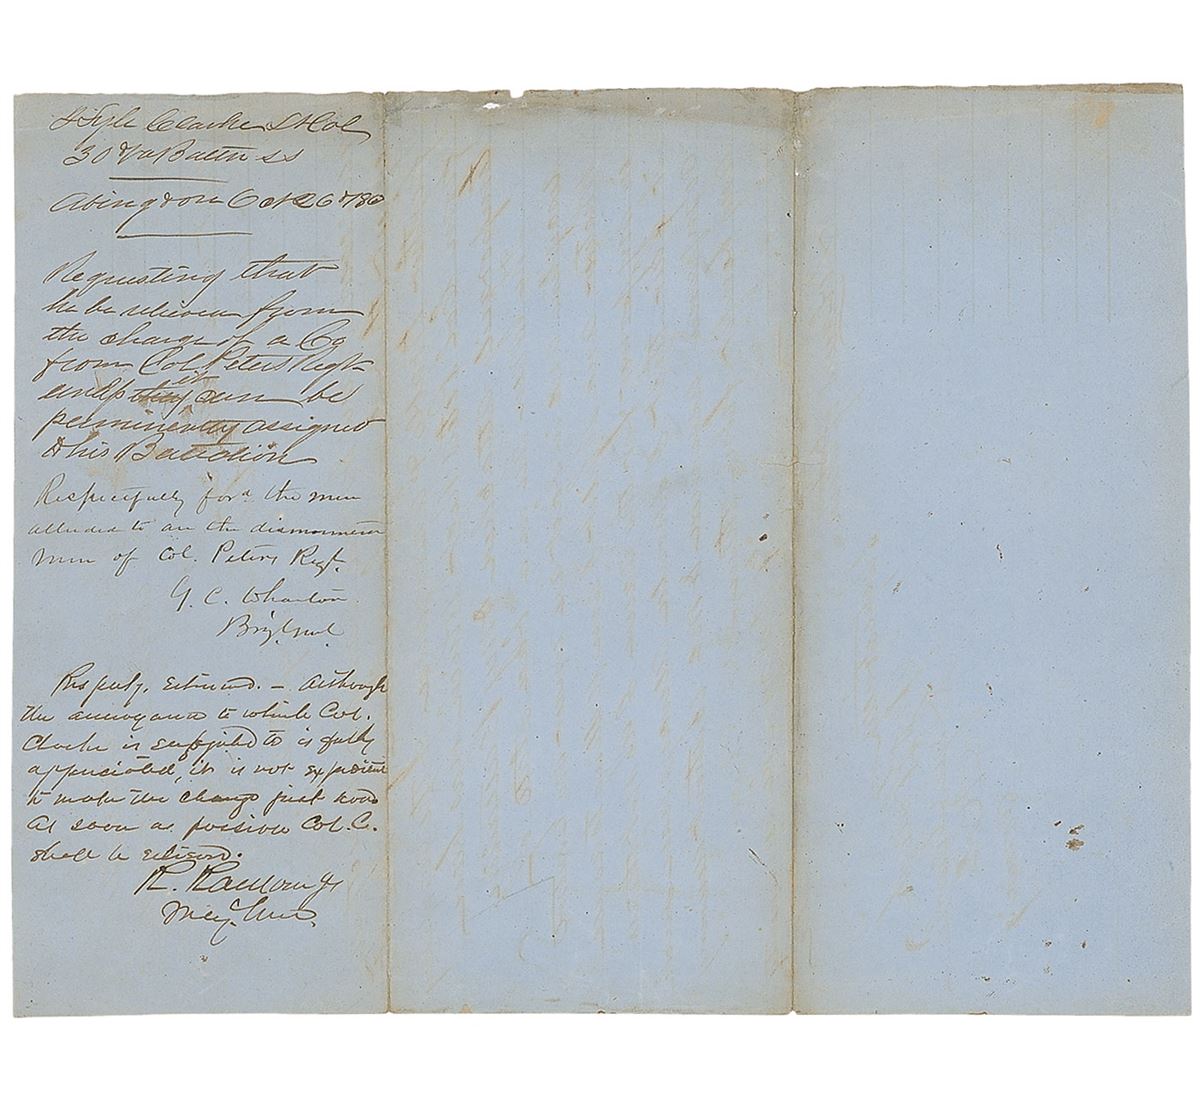 J Lyle Clarke Lt Col
30 Va Battn SS
Abingdon Oct 26th /63
Requesting that
he be relieved from
the charge of a Co
from Col Peters Regt
and if it can be
perminently assigned
to his Battalion
Respectfully ford. the men
alluded to are the dismounted
men of Col. Peters Regt.
G. C. Wharton
Brig. Genl.
Respcfly. returned. — Although
the annoyance to which Col.
Clarke is subjected to is fully
appreciated, it is not expedient
to make the change just now.
As soon as possible Col. C.
shall be relieved.
R. Ransom Jr
Maj. Genl.